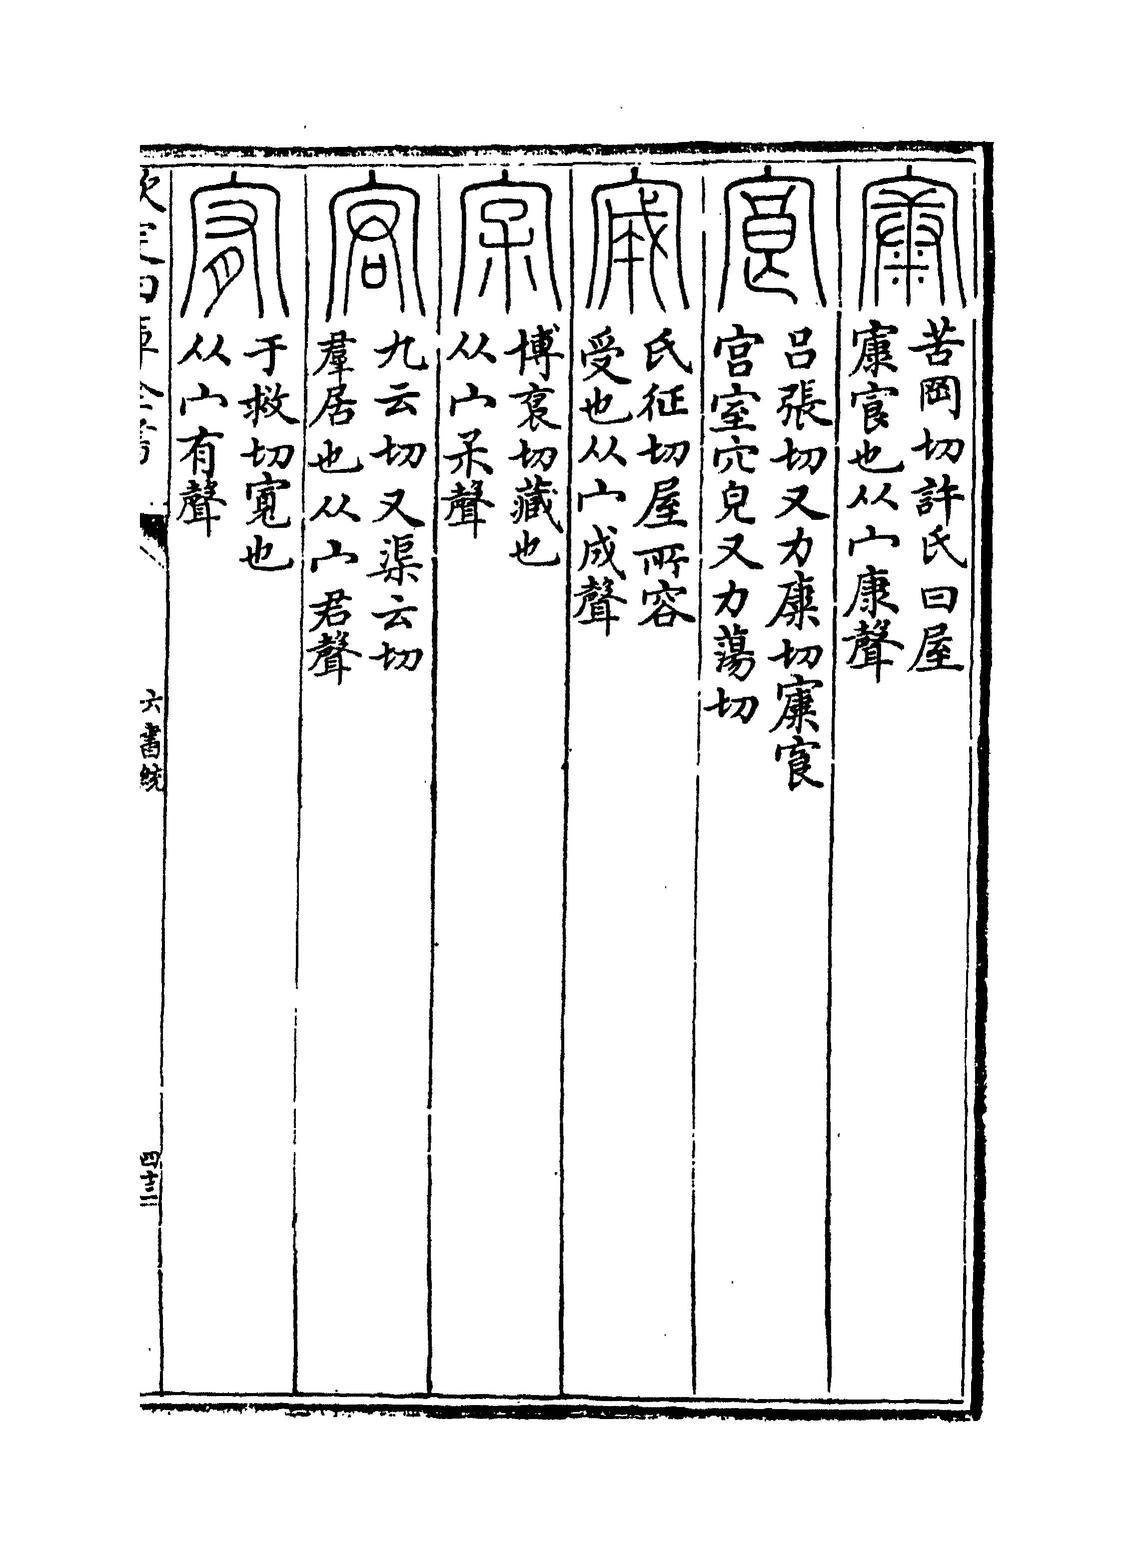 㝩 苦岡切許氏曰屋
㝩㝗也从宀康聲
㝗 吕張切又力㝩切㝩㝗
宫室空皃又力蕩切
宬 氏征切屋所容
受也从宀成聲
𡧖 博裒切藏也
从宀𤓽聲
窘 九云切又渠云切
羣居也从宀君聲
宥 于救切寬也
从宀有聲
欽定四庫全書
六書統
四十三